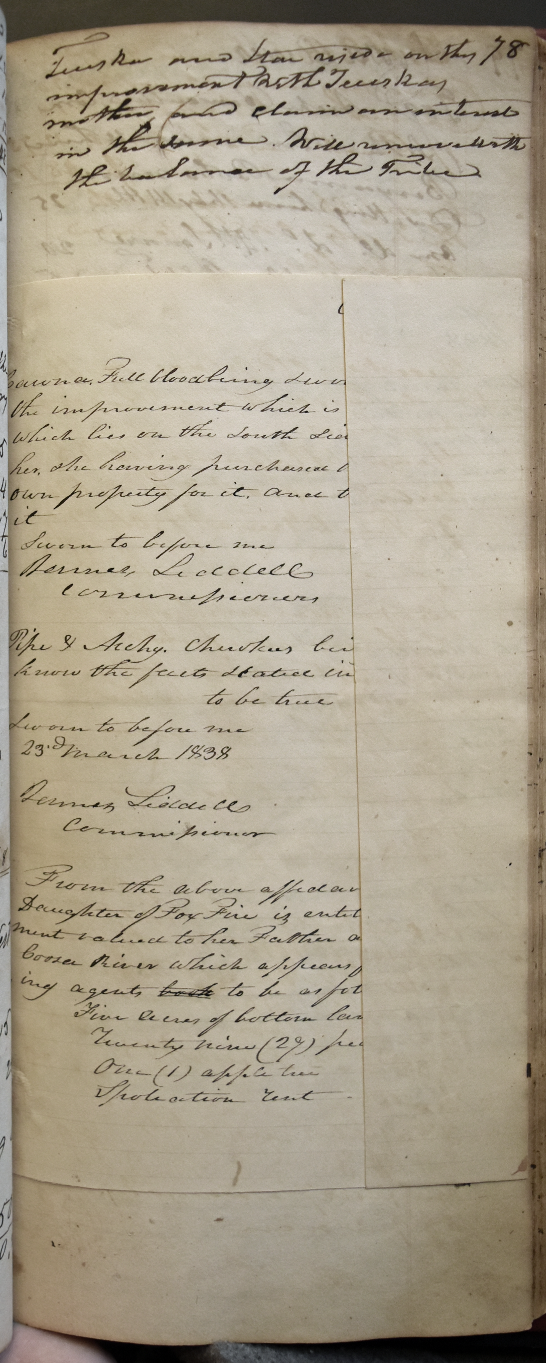 78
and Star reside on this
improvement with
mother, and claim an interest
in the same. Will remove with
the balance of the Tribe
Full blood being
the improvement which is
which lies on the South
her, she having purchased
own property for it. and
it
Sworn to before me
James Liddell
Commissioners
Pipe & Archy. Cherokees
know the facts stated in
to be true
Sworn to before me
23d March 1838
James Liddell
Commissioner
From the above
Daughter of Fox Fire is
valued to her Father
Coosa River which appears
ing agents book to be as
Five acres of bottom
Twenty nine (29)
One (1) apple tree
Spoliation rent